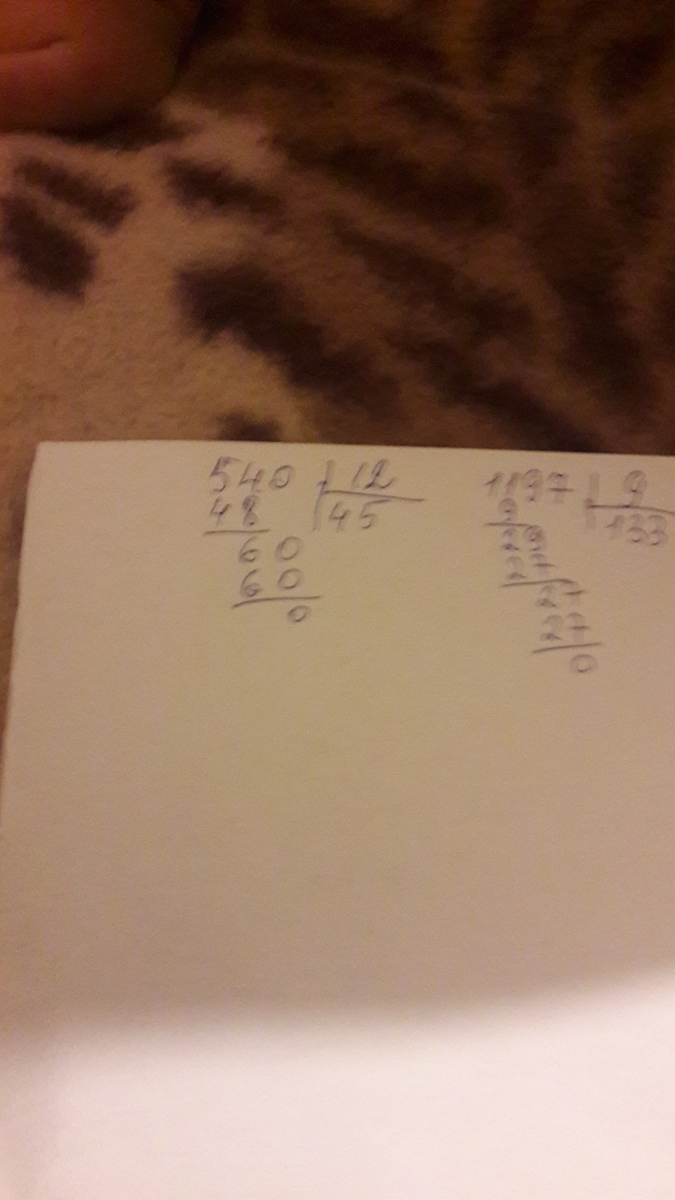 540 | 12
48 | 45
60
60
0
1197 | 9
9 | 133
29
27
27
27
0